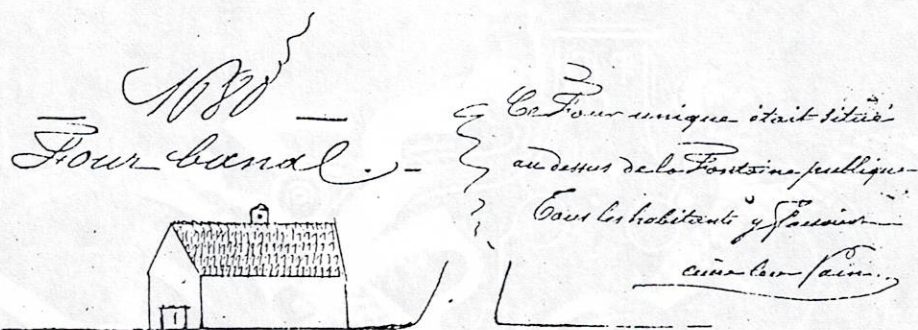 1680
Four banal. –
Ce Four unique était situé
au dessus de la Fontaine publique
Tous les habitants y faisaient
cuire leur Pain.